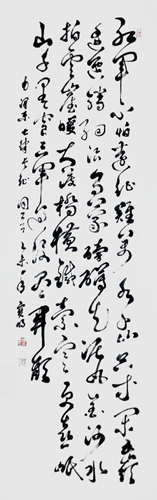 紅軍不怕遠征難萬水千山只等閑五嶺
逶迤騰細浪烏蒙磅礴走泥丸金沙水
拍雲崖暖大渡橋橫鐵索寒更喜岷
山千里雪三軍過後盡開顏
毛澤東七律長征 乙未年